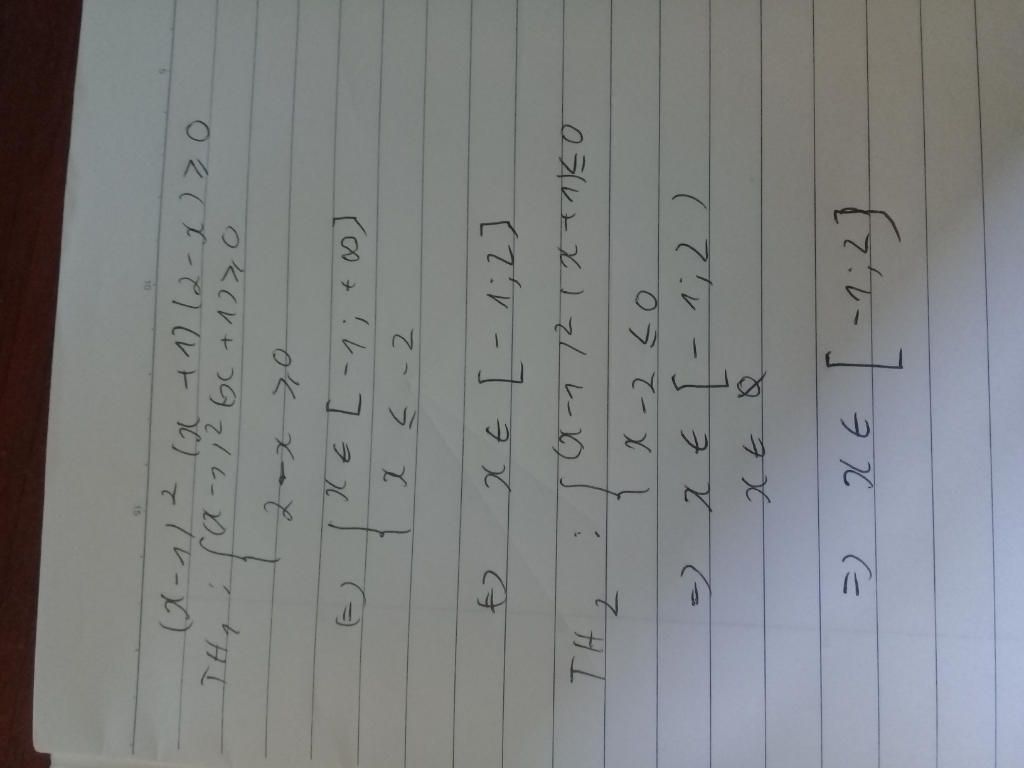 (x-1)² (x+1)(2-x) ≥ 0
TH1: { (x-1)² (x+1) ≥ 0
2-x ≥ 0
(=) { x ∈ [-1; +∞]
x ≤ -2
(=) x ∈ [-1; 2]
TH2: { (x-1)² (x+1) ≤ 0
x-2 ≤ 0
=) x ∈ [-1; 2)
x ∈ Ø
=) x ∈ [-1; 2]